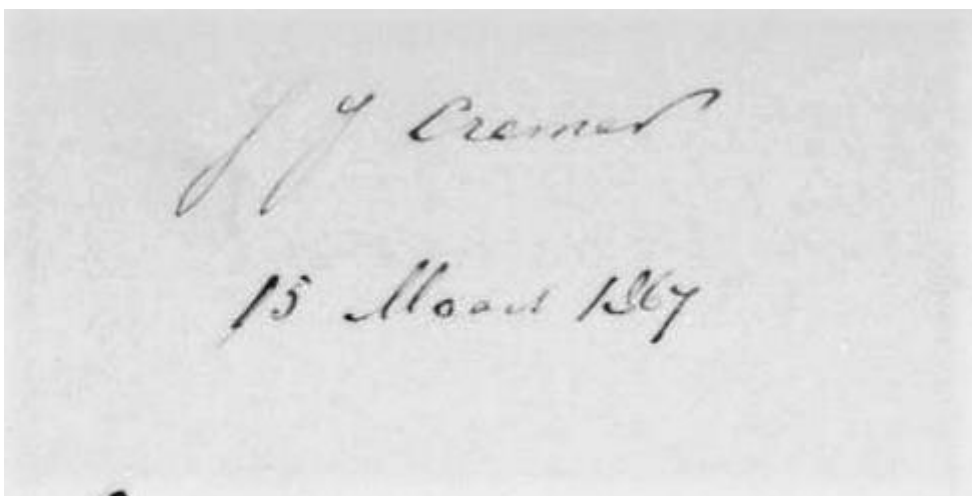 J J Cremer
15 Maart 1867